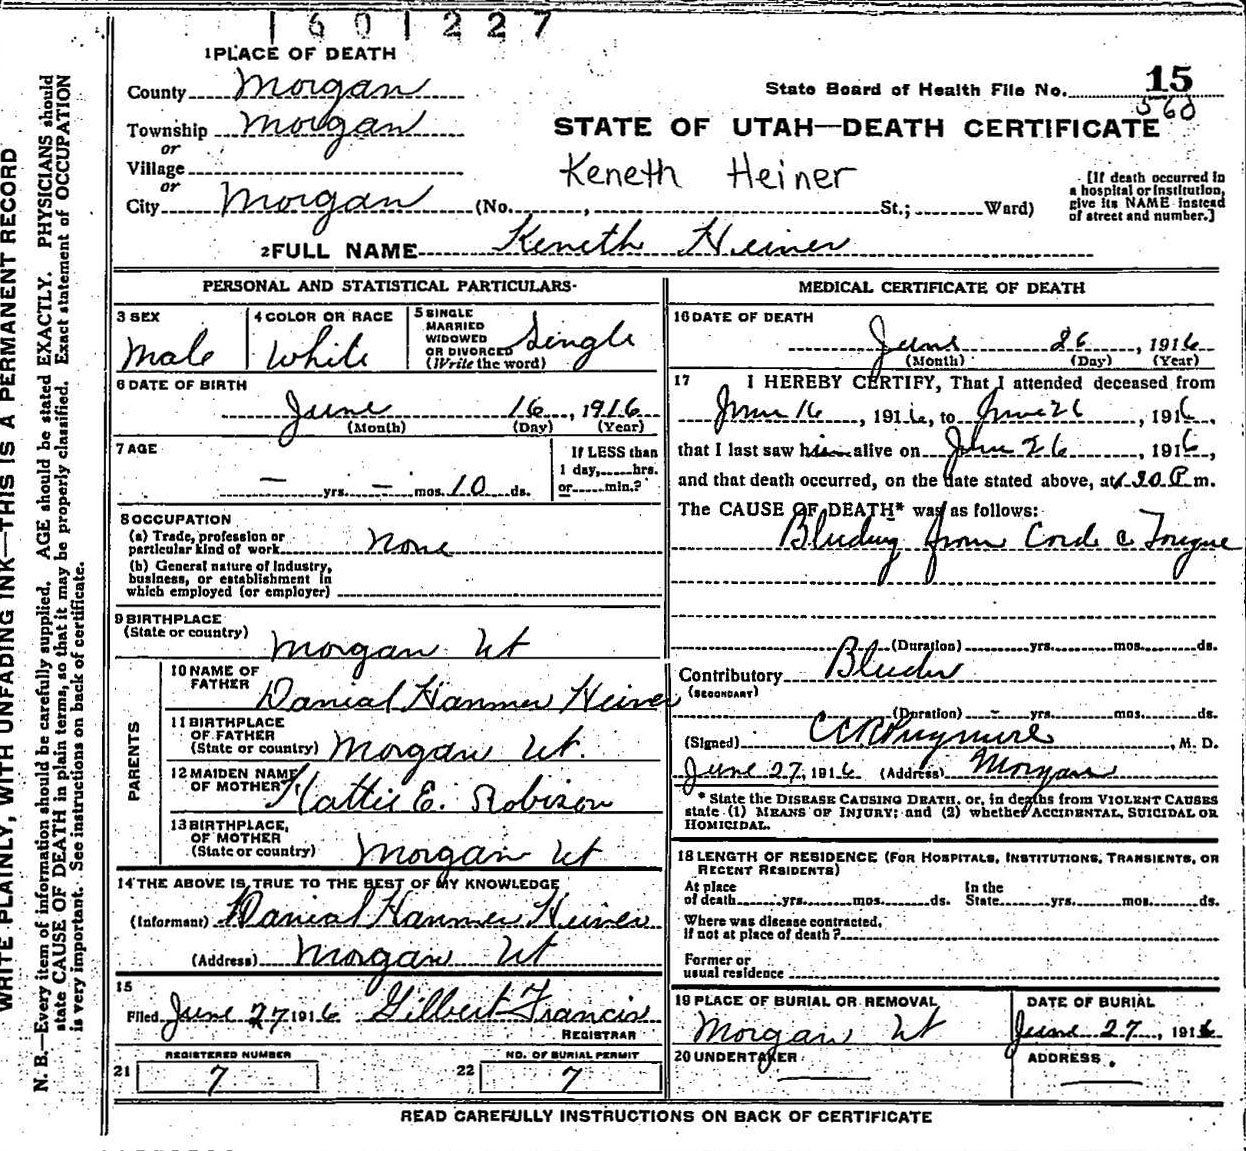 1601227
1 PLACE OF DEATH
County Morgan
Township Morgan
or
Village
or
City Morgan (No. , St.; Ward)
State Board of Health File No. 15
560
STATE OF UTAH—DEATH CERTIFICATE
Keneth Heiner
[If death occurred in
a hospital or institution,
give its NAME instead
of street and number.]
2 FULL NAME Keneth Heiner
PERSONAL AND STATISTICAL PARTICULARS
3 SEX
Male
4 COLOR OR RACE
White
5 SINGLE
MARRIED
WIDOWED
OR DIVORCED
(Write the word)
Single
6 DATE OF BIRTH
June 16, 1916
(Month) (Day) (Year)
7 AGE
— yrs. — mos. 10 ds.
If LESS than
1 day, hrs.
or min.?
8 OCCUPATION
(a) Trade, profession or
particular kind of work None
(b) General nature of industry,
business, or establishment in
which employed (or employer)
9 BIRTHPLACE
(State or country)
Morgan Ut
PARENTS
10 NAME OF
FATHER
Danial Hanmer Heiner
11 BIRTHPLACE
OF FATHER
(State or country) Morgan Ut.
12 MAIDEN NAME
OF MOTHER
Hattie E. Robison
13 BIRTHPLACE,
OF MOTHER
(State or country) Morgan Ut
14 THE ABOVE IS TRUE TO THE BEST OF MY KNOWLEDGE
(Informant) Danial Hanmer Heiner
(Address) Morgan Ut
15
Filed June 27 1916 Gilbert Francis
REGISTRAR
REGISTERED NUMBER
21 7
NO. OF BURIAL PERMIT
22 7
MEDICAL CERTIFICATE OF DEATH
16 DATE OF DEATH
June 26, 1916
(Month) (Day) (Year)
17 I HEREBY CERTIFY, That I attended deceased from
June 16, 1916, to June 26, 1916,
that I last saw him alive on June 26, 1916,
and that death occurred, on the date stated above, at 30 P m.
The CAUSE OF DEATH* was as follows:
Bluding from Cord & Tongue
(Duration) yrs. mos. ds.
Contributory Bluder
(SECONDARY)
(Duration) - yrs. mos. ds.
(Signed) , M. D.
June 27, 1916 (Address) Morgan
* State the DISEASE CAUSING DEATH, or, in deaths from VIOLENT CAUSES
state (1) MEANS OF INJURY; and (2) whether ACCIDENTAL, SUICIDAL OR
HOMICIDAL.
18 LENGTH OF RESIDENCE (FOR HOSPITALS, INSTITUTIONS, TRANSIENTS, OR
RECENT RESIDENTS)
At place
of death yrs. mos. ds.
In the
State yrs. mos. ds.
Where was disease contracted,
If not at place of death?
Former or
usual residence
19 PLACE OF BURIAL OR REMOVAL
Morgan Ut
DATE OF BURIAL
June 27, 1916
20 UNDERTAKER
ADDRESS
READ CAREFULLY INSTRUCTIONS ON BACK OF CERTIFICATE
WRITE PLAINLY, WITH UNFADING INK—THIS IS A PERMANENT RECORD
N. B.—Every item of information should be carefully supplied. AGE should be stated EXACTLY. PHYSICIANS should
state CAUSE OF DEATH in plain terms, so that it may be properly classified. Exact statement of OCCUPATION
is very important. See instructions on back of certificate.